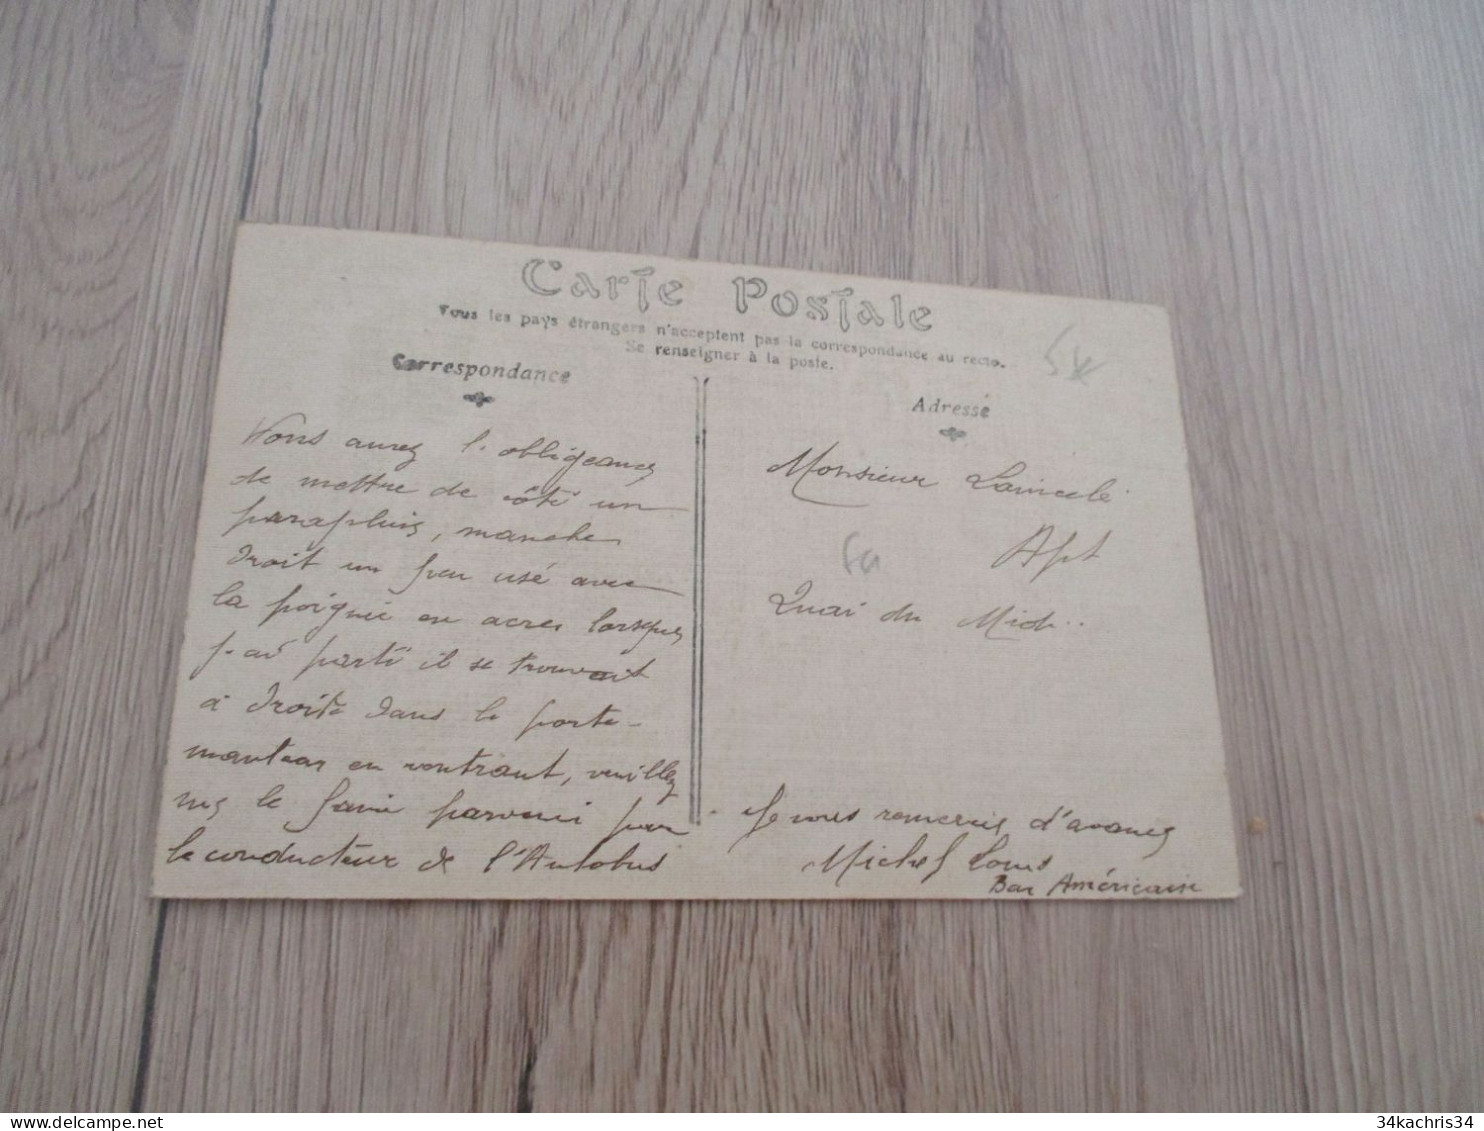 Carte Postale
Tous les pays étrangers n'acceptent pas la correspondance au recto.
Se renseigner à la poste.
Correspondance
Adresse
Vous aurez l'obligeance
de mettre de côté un
parapluie, manche
droit un peu usé avec
la poignie en acier lorsque
j'ai parti il se trouvait
à droite dans le porte-
manteau en rentrant, veuillez
me le faire parvenir par
le conducteur de l'Autobus
Monsieur
Apt
Quai du Midi
Je vous remercie d'avance
Michel Louis
Bar Américain
34kachris34